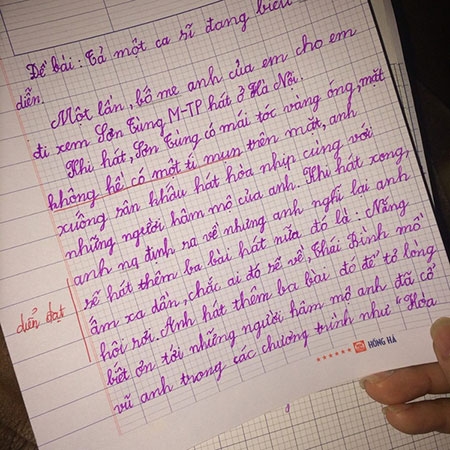 Đề bài: Tả một ca sĩ đang biểu
diễn.
Một lần, bố mẹ anh của em cho em
đi xem Sơn Tùng M-TP hát ở Hà Nội.
Khi hát, Sơn Tùng có mái tóc vàng óng, mặt
không hề có một tí mụn trên mặt, anh
xuống sân khấu hát hòa nhịp cùng với
những người hâm mộ của anh. Khi hát xong,
anh ng định ra về nhưng anh nghĩ lại anh
sẽ hát thêm ba bài hát nữa đó là: Nắng
ấm xa dần, chắc ai đó sẽ về, Thái Bình mồ
hôi rơi. Anh hát thêm ba bài đó để tỏ lòng
diễn đạt
biết ơn tới những người hâm mộ anh đã cổ
vũ anh trong các chương trình như "Hòa
HỒNG HÀ